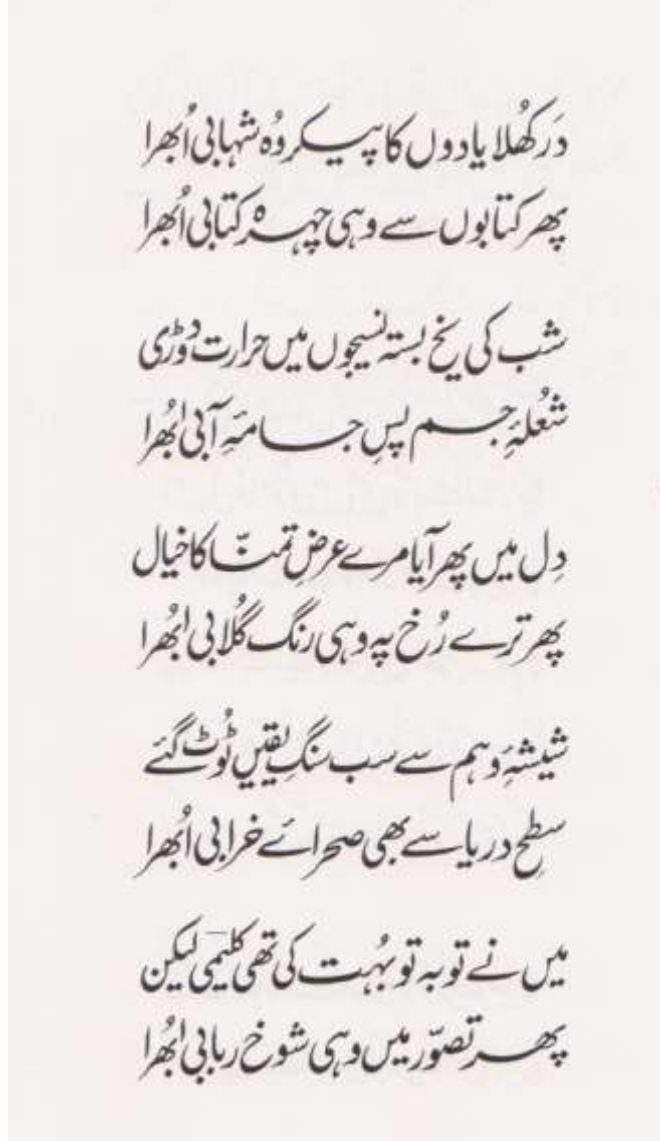 دَر کھُلا یادوں کا پیکر وُہ شہابی اُبھرا
پھر کتابوں سے وہی چہرہ کتابی اُبھرا
شب کی یخ بستہ نسیجوں میں حرارت دَوڑی
شُعلۂِ جسم پسِ جامۂِ آبی اُبھرا
دِل میں پھر آیا مرے عرضِ تمنّا کا خیال
پھر ترے رُخ پہ وہی رنگ گُلابی اُبھرا
شیشۂِ وہم سے سب سنگِ یقیں ٹُوٹ گئے
سطحِ دریا سے بھی صحرائے خرابی اُبھرا
میں نے توبہ تو بہُت کی تھی کلیمی لیکن
پھر تصوّر میں وہی شوخ ربابی اُبھرا